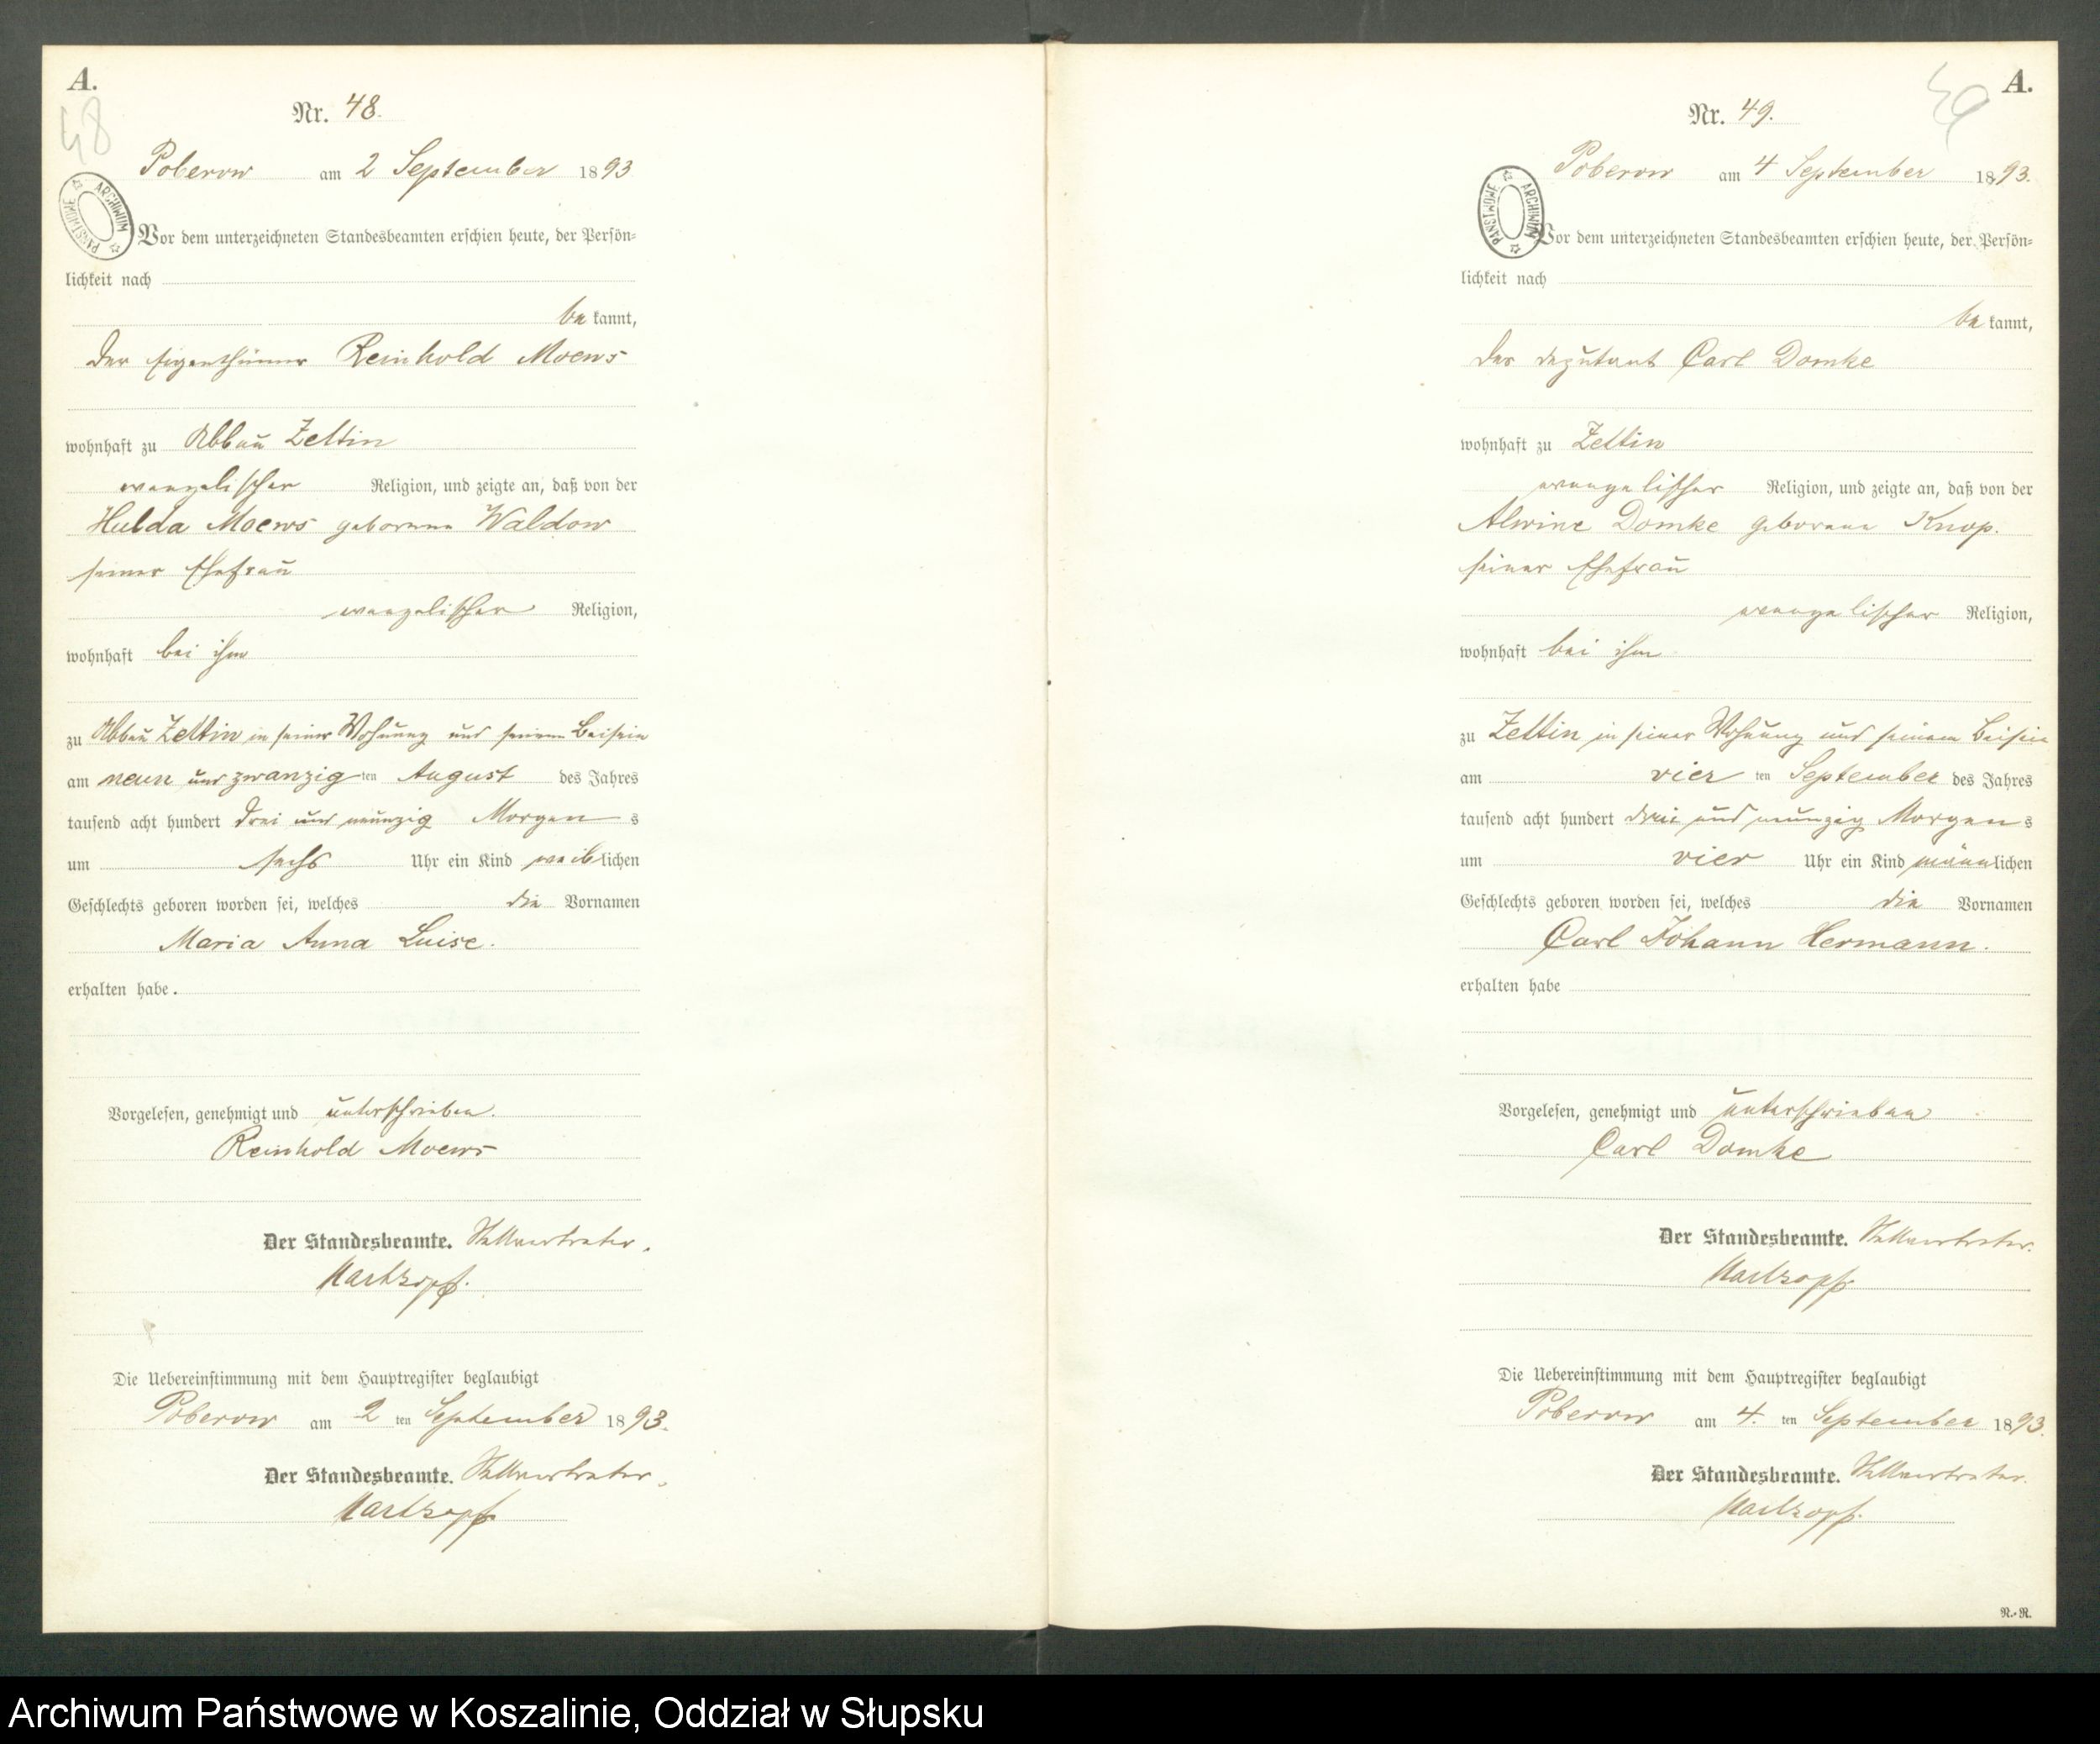 A.
48
Nr. 48.
Poberow am 2 September 1893
PAŃSTWOWE ARCHIWUM
Vor dem unterzeichneten Standesbeamten erschien heute, der Persön-
lichkeit nach
be kannt,
der Eigenthümer Reinhold Moews
wohnhaft zu Abbau Zettin
evangelischer Religion, und zeigte an, daß von der
Hulda Moews geborenen Waldow
seiner Ehefrau
evangelischer Religion,
wohnhaft bei ihm
zu Abbau Zettin in seiner Wohnung und seinem Beisein
am neun und zwanzig ten August des Jahres
tausend acht hundert drei und neunzig Morgen s
um sechs Uhr ein Kind weiblichen
Geschlechts geboren worden sei, welches die Vornamen
Maria Anna Luise.
erhalten habe.
Vorgelesen, genehmigt und unterschrieben.
Reinhold Moews
Der Standesbeamte. Stellvertreter.
Die Uebereinstimmung mit dem Hauptregister beglaubigt
Poberow am 2 ten September 1893.
Der Standesbeamte. Stellvertreter.
A.
49
Nr. 49.
Poberow am 4 September 1893.
PAŃSTWOWE ARCHIWUM
Vor dem unterzeichneten Standesbeamten erschien heute, der Persön-
lichkeit nach
be kannt,
der Deputant Carl Domke
wohnhaft zu Zettin
evangelischer Religion, und zeigte an, daß von der
Alwine Domke geborene Knop.
seiner Ehefrau
evangelischer Religion,
wohnhaft bei ihm
zu Zettin in seiner Wohnung und seinem Beisein
am vier ten September des Jahres
tausend acht hundert drei und neunzig Morgen s
um vier Uhr ein Kind männlichen
Geschlechts geboren worden sei, welches die Vornamen
Carl Johann Hermann.
erhalten habe
Vorgelesen, genehmigt und unterschrieben
Carl Domke
Der Standesbeamte. Stellvertreter.
Die Uebereinstimmung mit dem Hauptregister beglaubigt
Poberow am 4. ten September 1893.
Der Standesbeamte. Stellvertreter.
N.-R.
Archiwum Państwowe w Koszalinie, Oddział w Słupsku